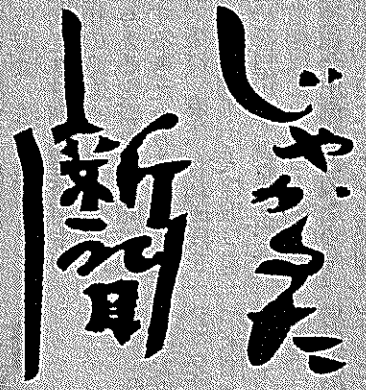 じゃかるた
新聞